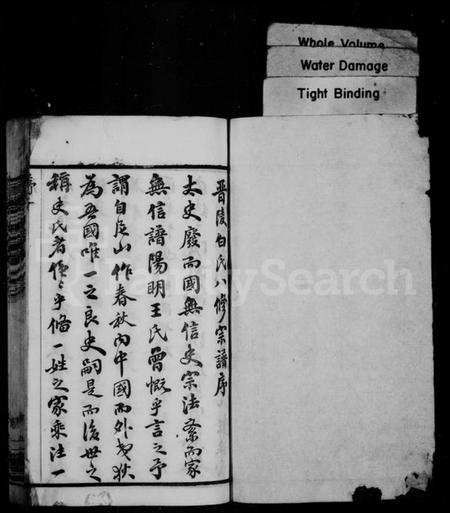 Whole Volume
Water Damage
Tight Binding
晋陵白氏八修宗譜序
太史廢而國無信史宗法紊而家
無信譜陽明王氏曾慨乎言之予
謂自尼山作春秋內中國而外夷狄
為吾國唯一之良史嗣是而後世之
稱史氏者僅乎偹一姓之家乘注一
FamilySearch